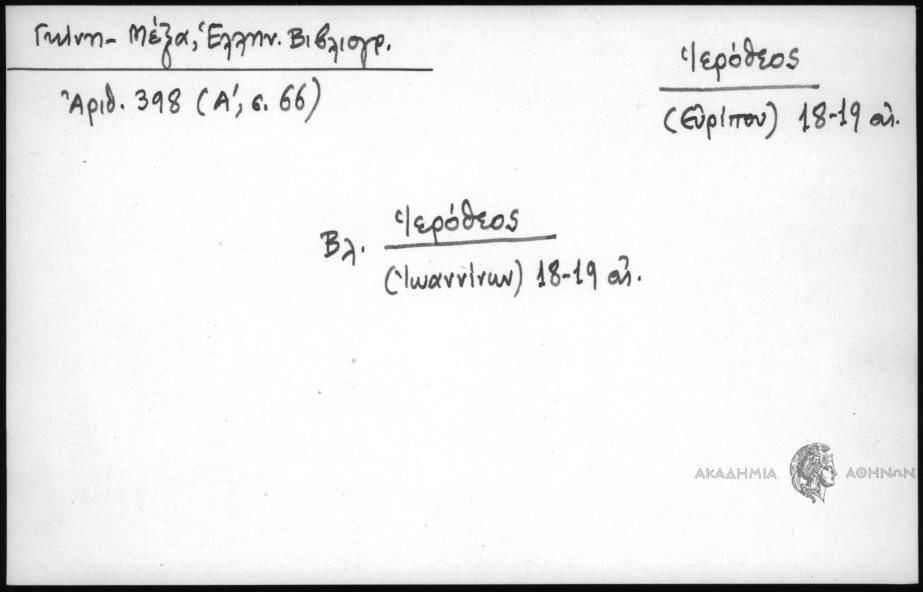 Γκίνη - Μέξα, Ἑλλην. Βιβλιογρ.
Ἀριθ. 398 (Α΄, σ. 66)
Ἱερόθεος
(Εὐρίπου) 18-19 αἰ.
Βλ. Ἱερόθεος
(Ἰωαννίνων) 18-19 αἰ.
ΑΚΑΔΗΜΙΑ ΑΘΗΝΩΝ